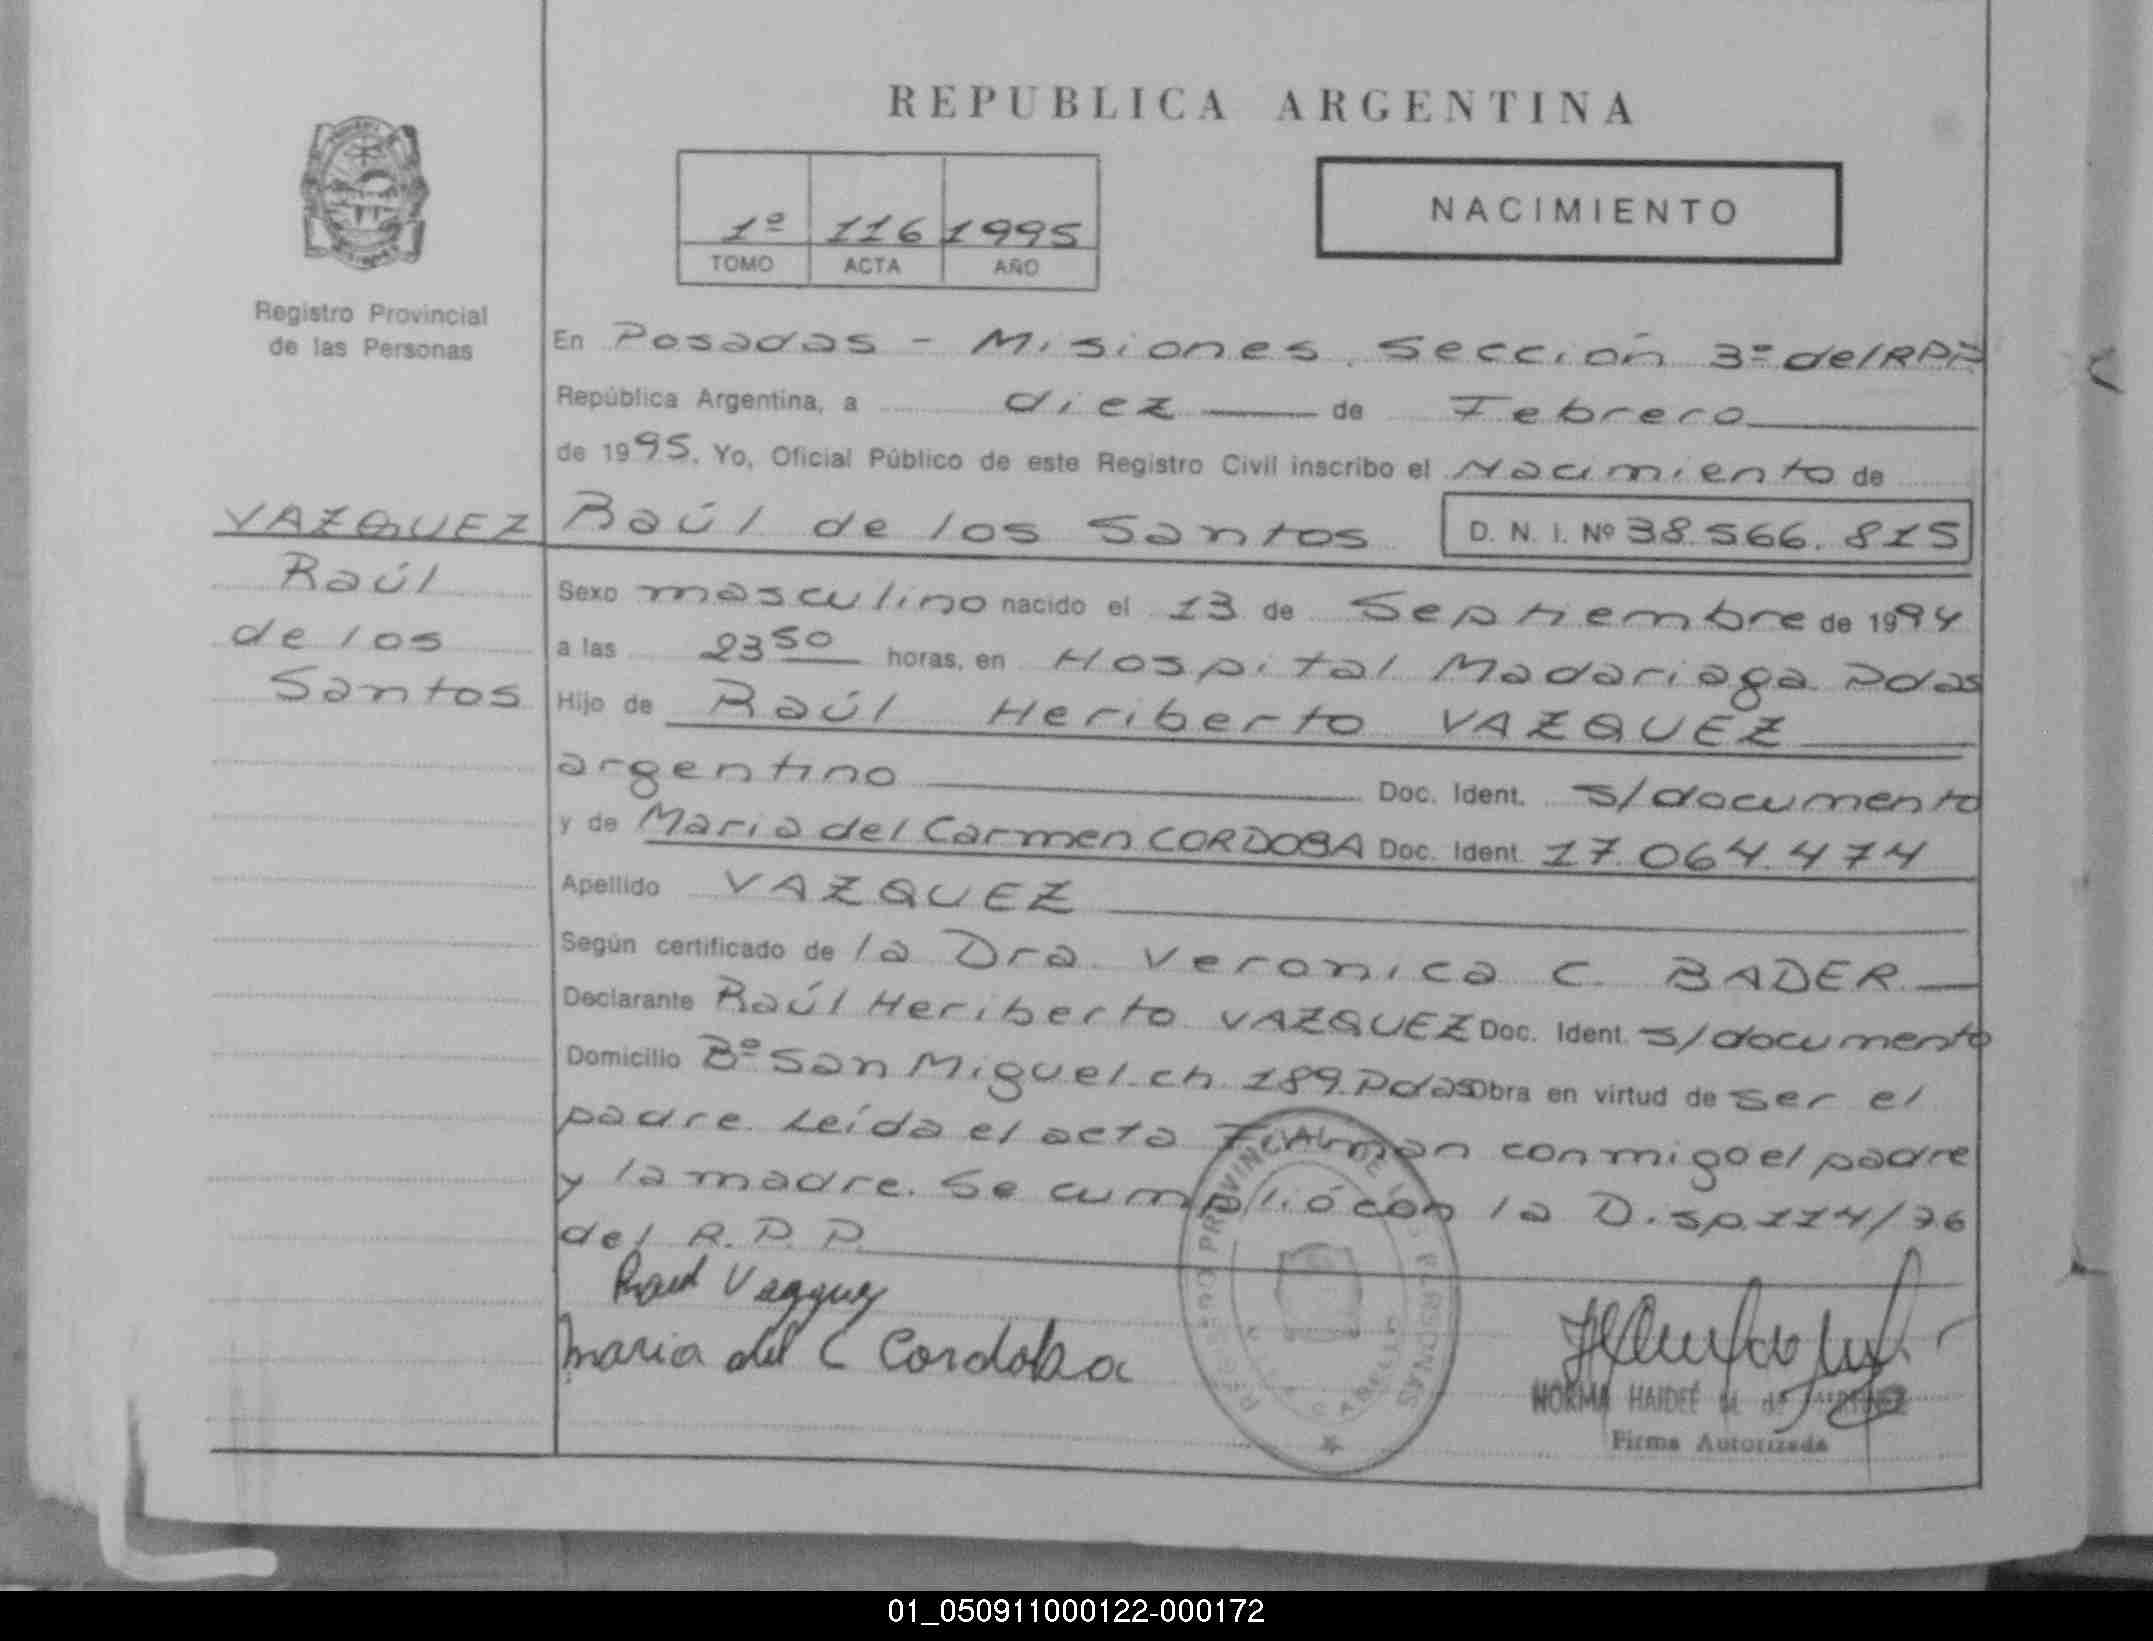 REPUBLICA ARGENTINA
1º 116 1995
TOMO ACTA AÑO
NACIMIENTO
Registro Provincial
de las Personas
En Posadas - Misiones. Sección 3º del RPP
República Argentina, a diez de Febrero
de 1995. Yo, Oficial Público de este Registro Civil inscribo el Nacimiento de
VAZQUEZ
Raúl
de los
Santos
Raúl de los Santos D. N. I. Nº 38.566.815
Sexo masculino nacido el 13 de Septiembre de 1994
a las 23 50 horas, en Hospital Madariaga Pdas
Hijo de Raúl Heriberto VAZQUEZ
argentino Doc. Ident. s/documento
y de Maria del Carmen CORDOBA Doc. Ident. 17.064.474
Apellido VAZQUEZ
Según certificado de la Dra. Veronica C. BADER
Declarante Raúl Heriberto VAZQUEZ Doc. Ident. s/documento
Domicilio Bº San Miguel ch. 189. Pdas Obra en virtud de ser el
padre. Leída el acta Firman conmigo el padre
y la madre. Se cumplió con la Disp. 114/76
del R.P.P.
Raul Vazquez
Maria del C Cordoba
REGISTRO PROVINCIAL DE LAS PERSONAS
NORMA HAIDEÉ M. de
Firma Autorizada
01_050911000122-000172